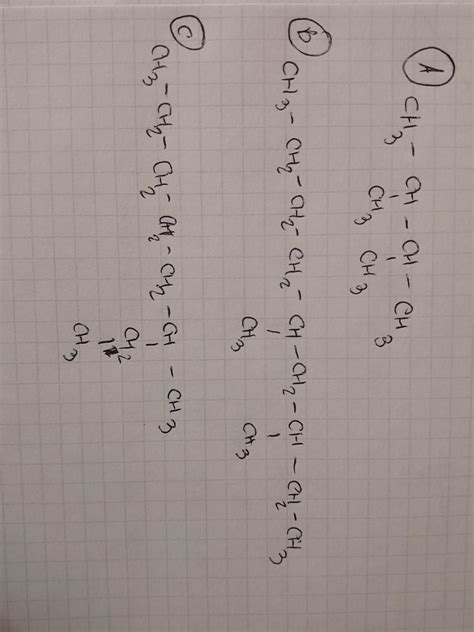 A
CH3 – CH – CH – CH3
CH3 CH3
B
CH3 – CH2 – CH2 – CH2 – CH – CH2 – CH – CH2 – CH3
CH3 CH3
C
CH3 – CH2 – CH2 – CH2 – CH2 – CH – CH3
CH2
CH3